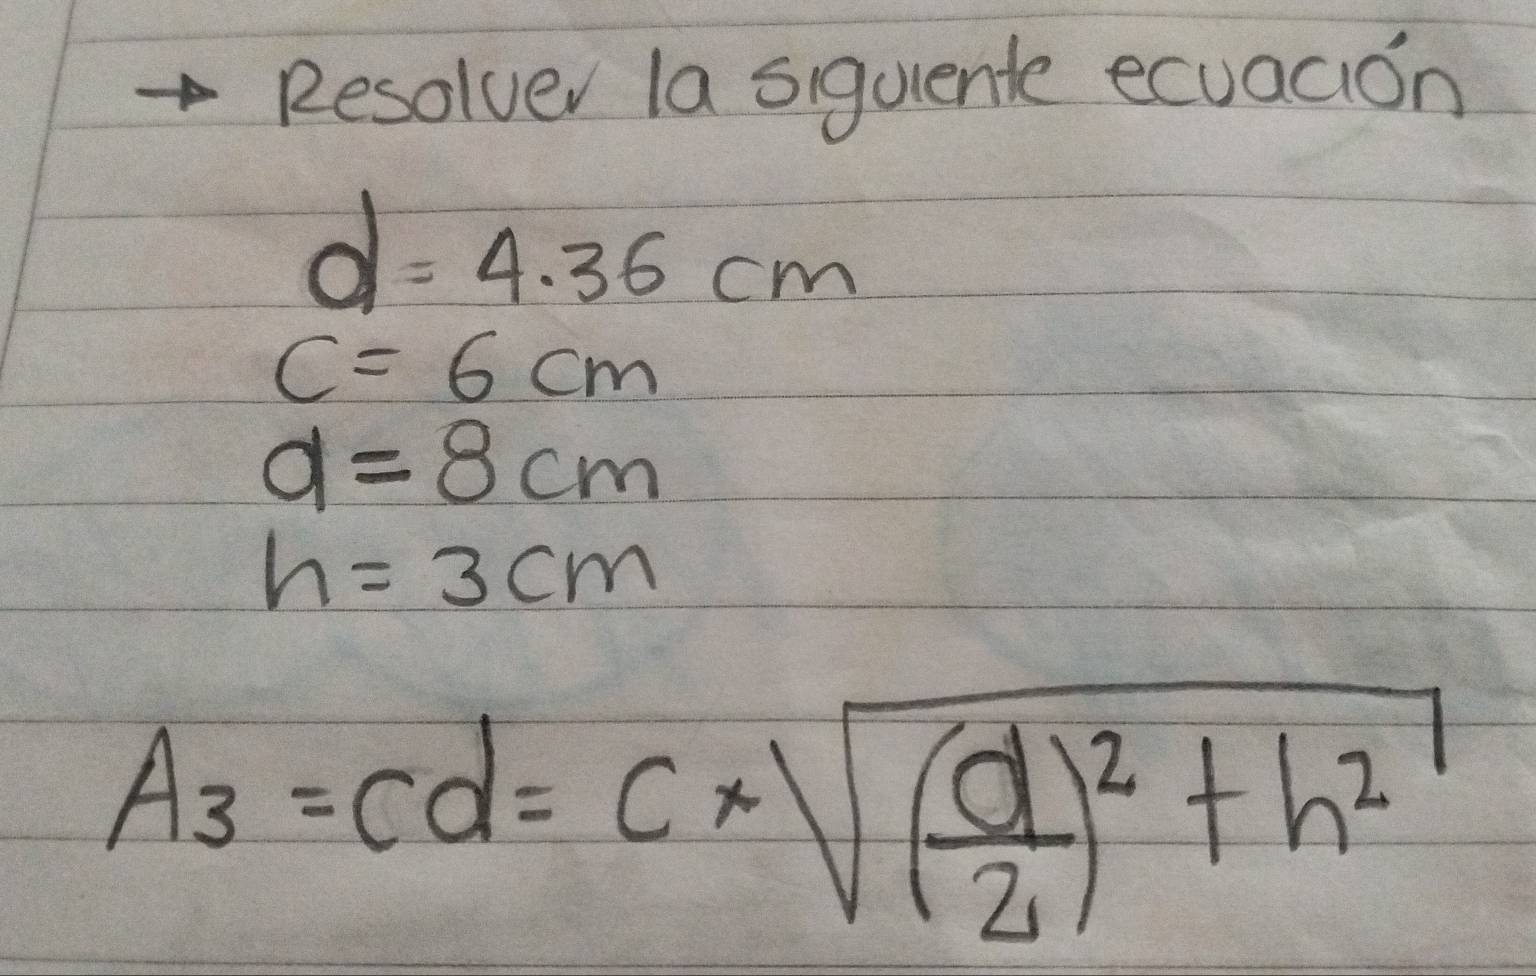 → Resolver la siguiente ecuación
d = 4.36 cm
c = 6 cm
a = 8 cm
h = 3 cm
A₃ = cd = c × √((d/2)² + h²)